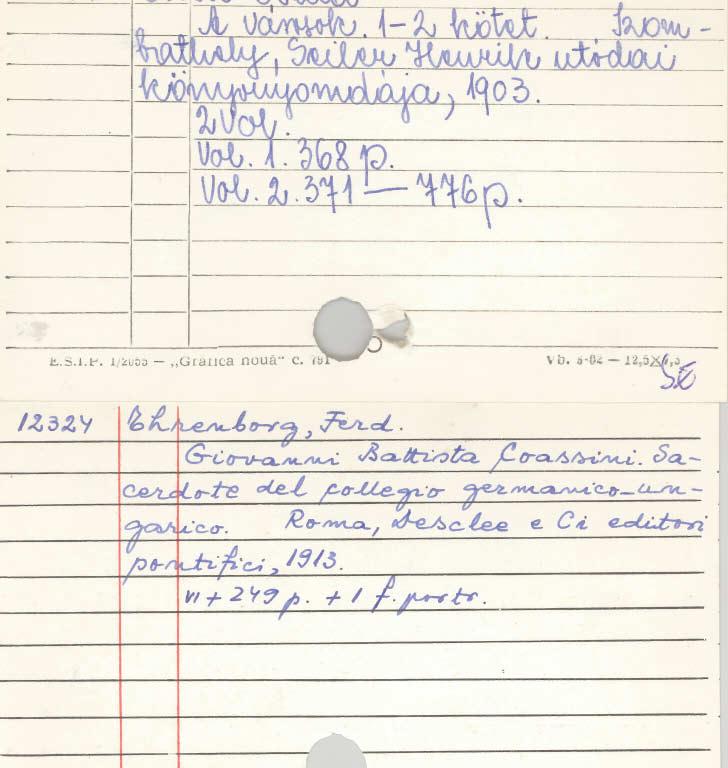 A városok. 1-2 kötet. Szom-
bathely, Seiler Henrik utódai
könyvnyomdája, 1903.
2 Vol.
Vol. 1. 368 p.
Vol. 2. 371 — 776 p.
E.S.I.P. 1/2055 — „Grafica nouă" c. 781 Vb. 5-62 — 12,5X7,5
12324 Ehrenborg, Ferd.
Giovanni Battista Coassini. Sa-
cerdote del collegio germanico-un-
garico. Roma, Desclee e Ci editori
pontifici, 1913.
VI + 249 p. + 1 f. portr.